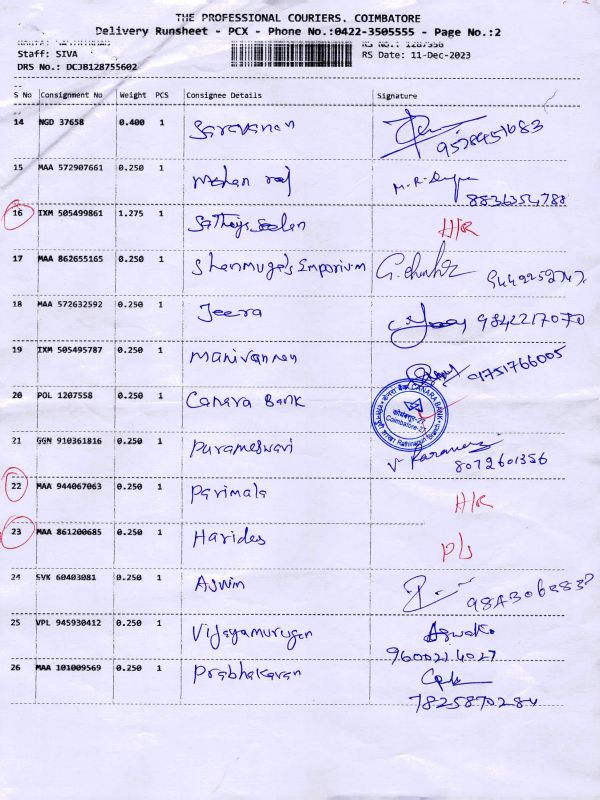 THE PROFESSIONAL COURIERS. COIMBATORE
Delivery Runsheet - PCX - Phone No.:0422-3505555 - Page No.:2
Staff: SIVA
RS Date: 11-Dec-2023
DRS No.: DCJB128755602
S No Consignment No Weight PCS Consignee Details Signature
14 NGD 37658 0.400 1 Saravanan 9578451683
15 MAA 572907661 0.250 1 Mohan raj 8836354788
16 IXM 505499861 1.275 1 H/R
17 MAA 862655165 0.250 1 Shanmuga's Emporium
18 MAA 572632592 0.250 1 Jeera 9842217070
19 IXM 505495787 0.250 1 Manivannan 9751766005
20 POL 1207558 0.250 1 Canara Bank
CANARA BANK
Coimbatore
21 GGN 910361816 0.250 1 Purameswari 8072601356
22 MAA 944067063 0.250 1 Parimala H/R
23 MAA 861200685 0.250 1 Harides P/S
24 SVK 60403081 0.250 1 Aswin
25 VPL 945930412 0.250 1 Vijayamurugan
9600214027
26 MAA 101009569 0.250 1 Prabhakaran
7825870284